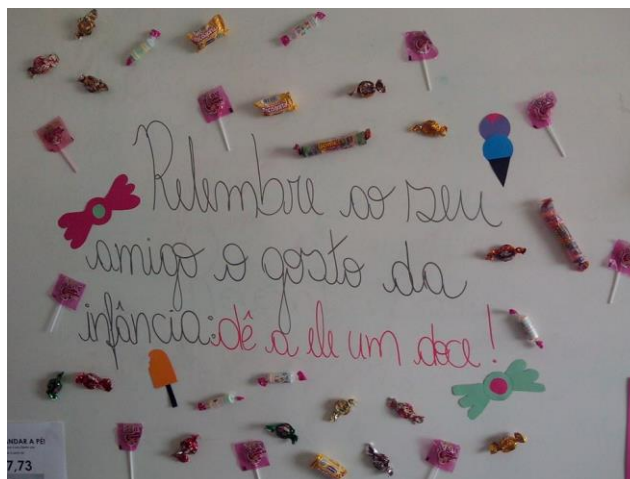 Relembre ao seu
amigo o gosto da
infância: dê a ele um doce!
ANDAR A PÉ!
7,73